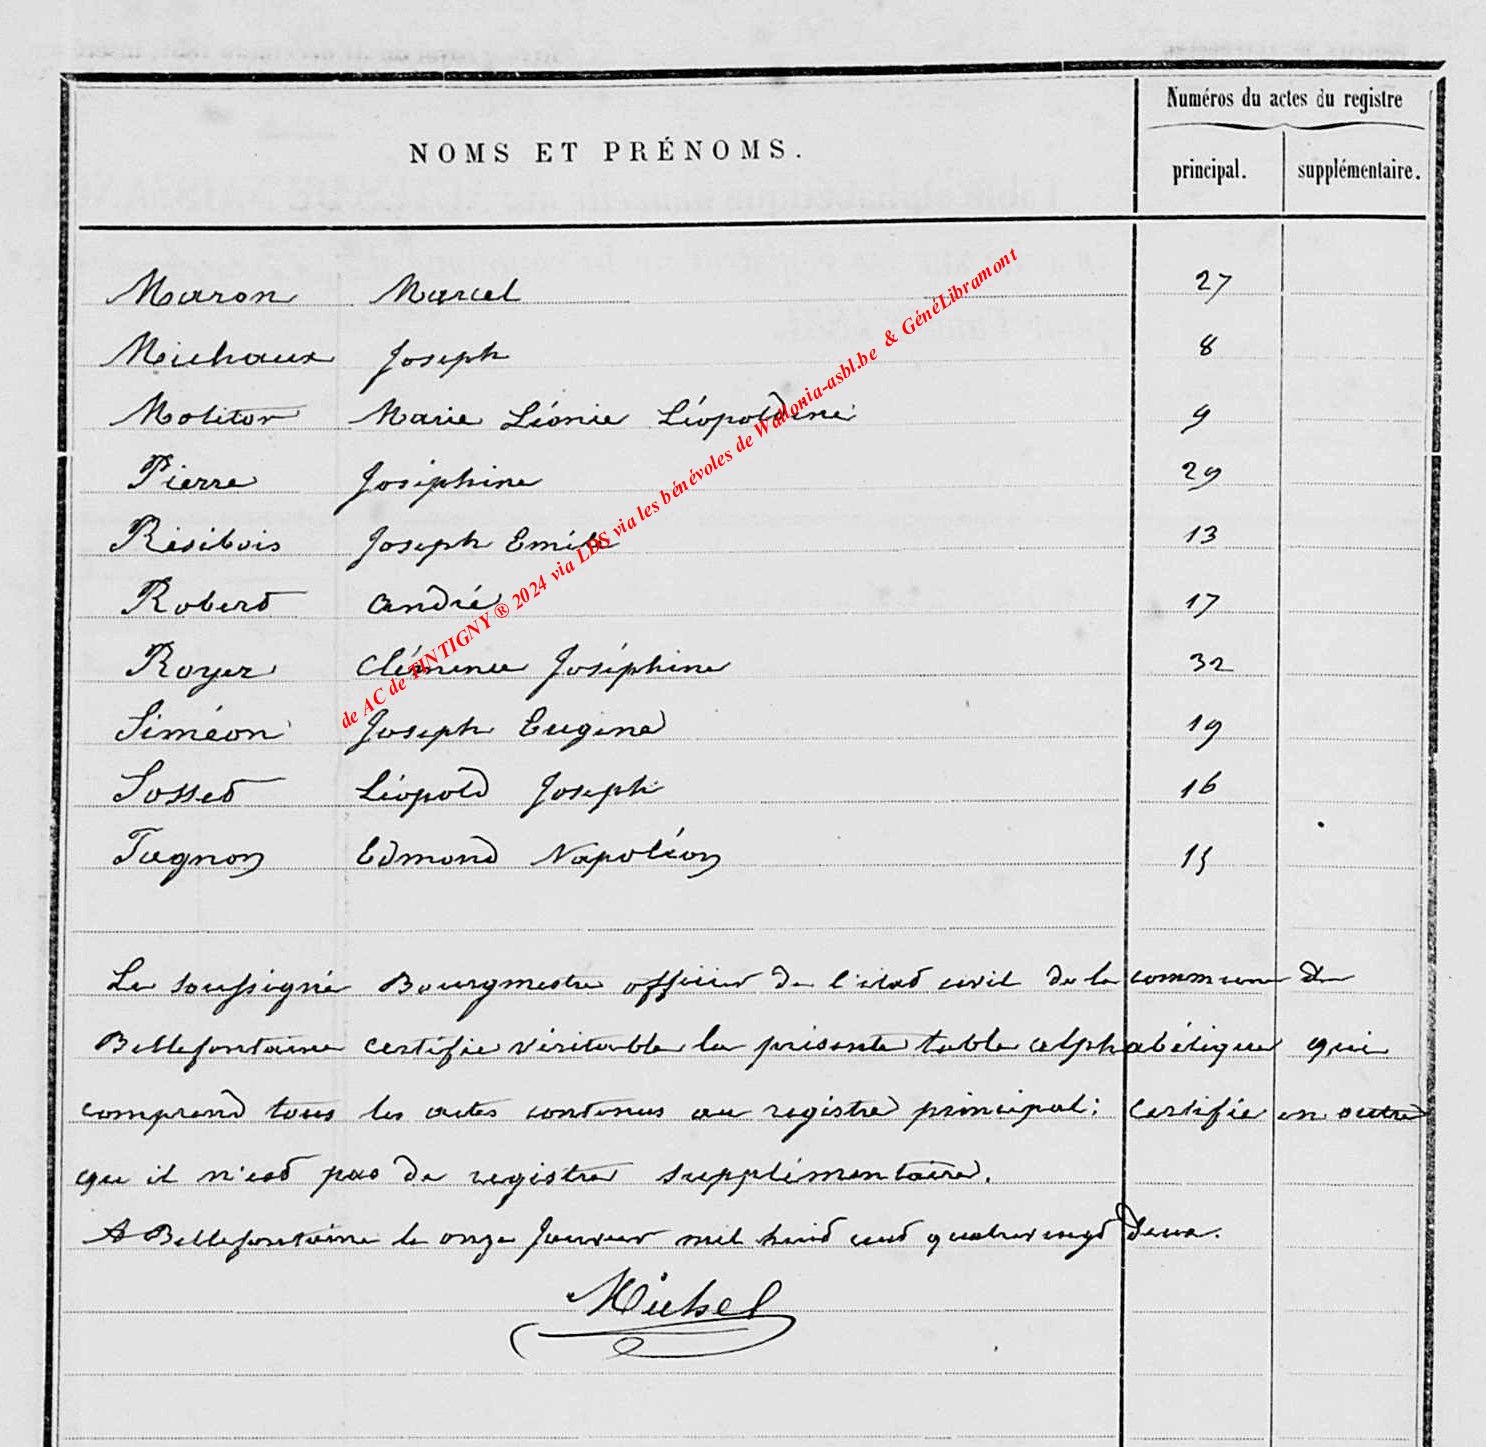 Numéros du actes du registre
NOMS ET PRÉNOMS.
principal. supplémentaire.
Maron Marcel 27
Michaux Joseph 8
Molitor Marie Léonie Léopoldine 9
Pierre Joséphine 29
Résibois Joseph Emile 13
Robert André 17
Royer Clémence Joséphine 32
Siméon Joseph Eugène 19
Sosset Léopold Joseph 16
Tagnon Edmond Napoléon 15
de AC de TINTIGNY ® 2024 via LDS via les bénévoles de Wallonia-asbl.be & GénéLibramont
Le soussigné Bourgmestre officier de l'état civil de la commune de
Bellefontaine certifie véritable la présente table alphabétique qui
comprend tous les actes contenus au registre principal; certifie en outre
qu il n'est pas de registre supplémentaire.
A Bellefontaine le onze Janvier mil huit cent quatre vingt deux.
Michel